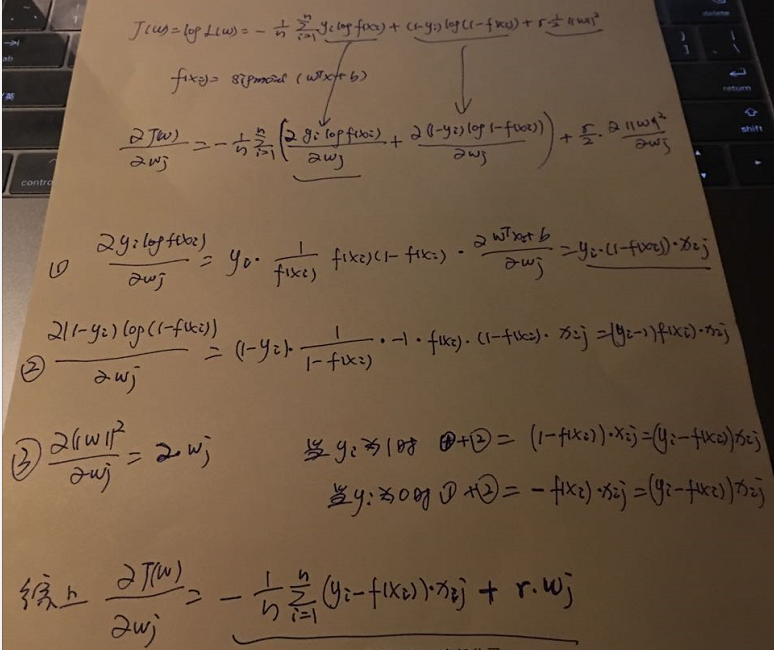 J(w) = log L(w) = - 1/n Σ_{i=1}^{n} yi log f(xi) + (1-yi) log(1-f(xi)) + r·1/2 ||w||²
f(xi) = sigmoid (wᵀxi+b)
∂J(w)/∂wj = - 1/n Σ_{i=1}^{n} (∂ yi log f(xi)/∂wj + ∂(1-yi) log 1-f(xi))/∂wj) + r/2 · ∂||w||²/∂wj
① ∂yi log f(xi)/∂wj = yi · 1/f(xi) f(xi)(1-f(xi)) · ∂wᵀxi+b/∂wj = yi·(1-f(xi))·xij
② ∂(1-yi) log(1-f(xi))/∂wj = (1-yi)· 1/1-f(xi) · -1 · f(xi)·(1-f(xi))· xij = (yi-1)f(xi)·xij
③ ∂||w||²/∂wj = 2·wj
当 yi 为1时 ①+② = (1-f(xi))·xij = (yi-f(xi))xij
当 yi 为0时 ①+② = -f(xi)·xij = (yi-f(xi))xij
综上 ∂J(w)/∂wj = - 1/n Σ_{i=1}^{n} (yi-f(xi))·xij + r·wj
delete
return
shift
tab
control